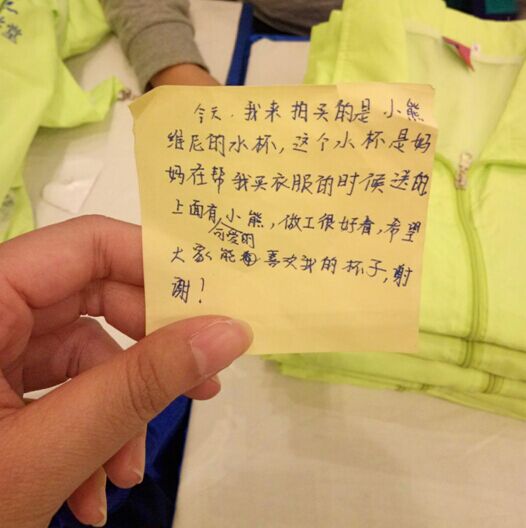 今天.我来拍买的是小熊
维尼的水杯,这个水杯是妈
妈在帮我买衣服的时候送的
上面有可爱的小熊,做工很好看,希望
大家能喜欢我的杯子,谢
谢!
堂